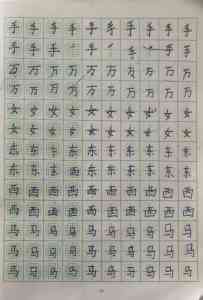 手手手手手手手手手
手手手手手手
万万万万万万万万万
万万万万万万万万万
女女女女女女女女女
女女女女女女女女女
东东东东东东东东东
东东东东东东东东东
西西西西西西西西西
西西西西西西西西西
马马马马马马马马马
马马马马马马马马马